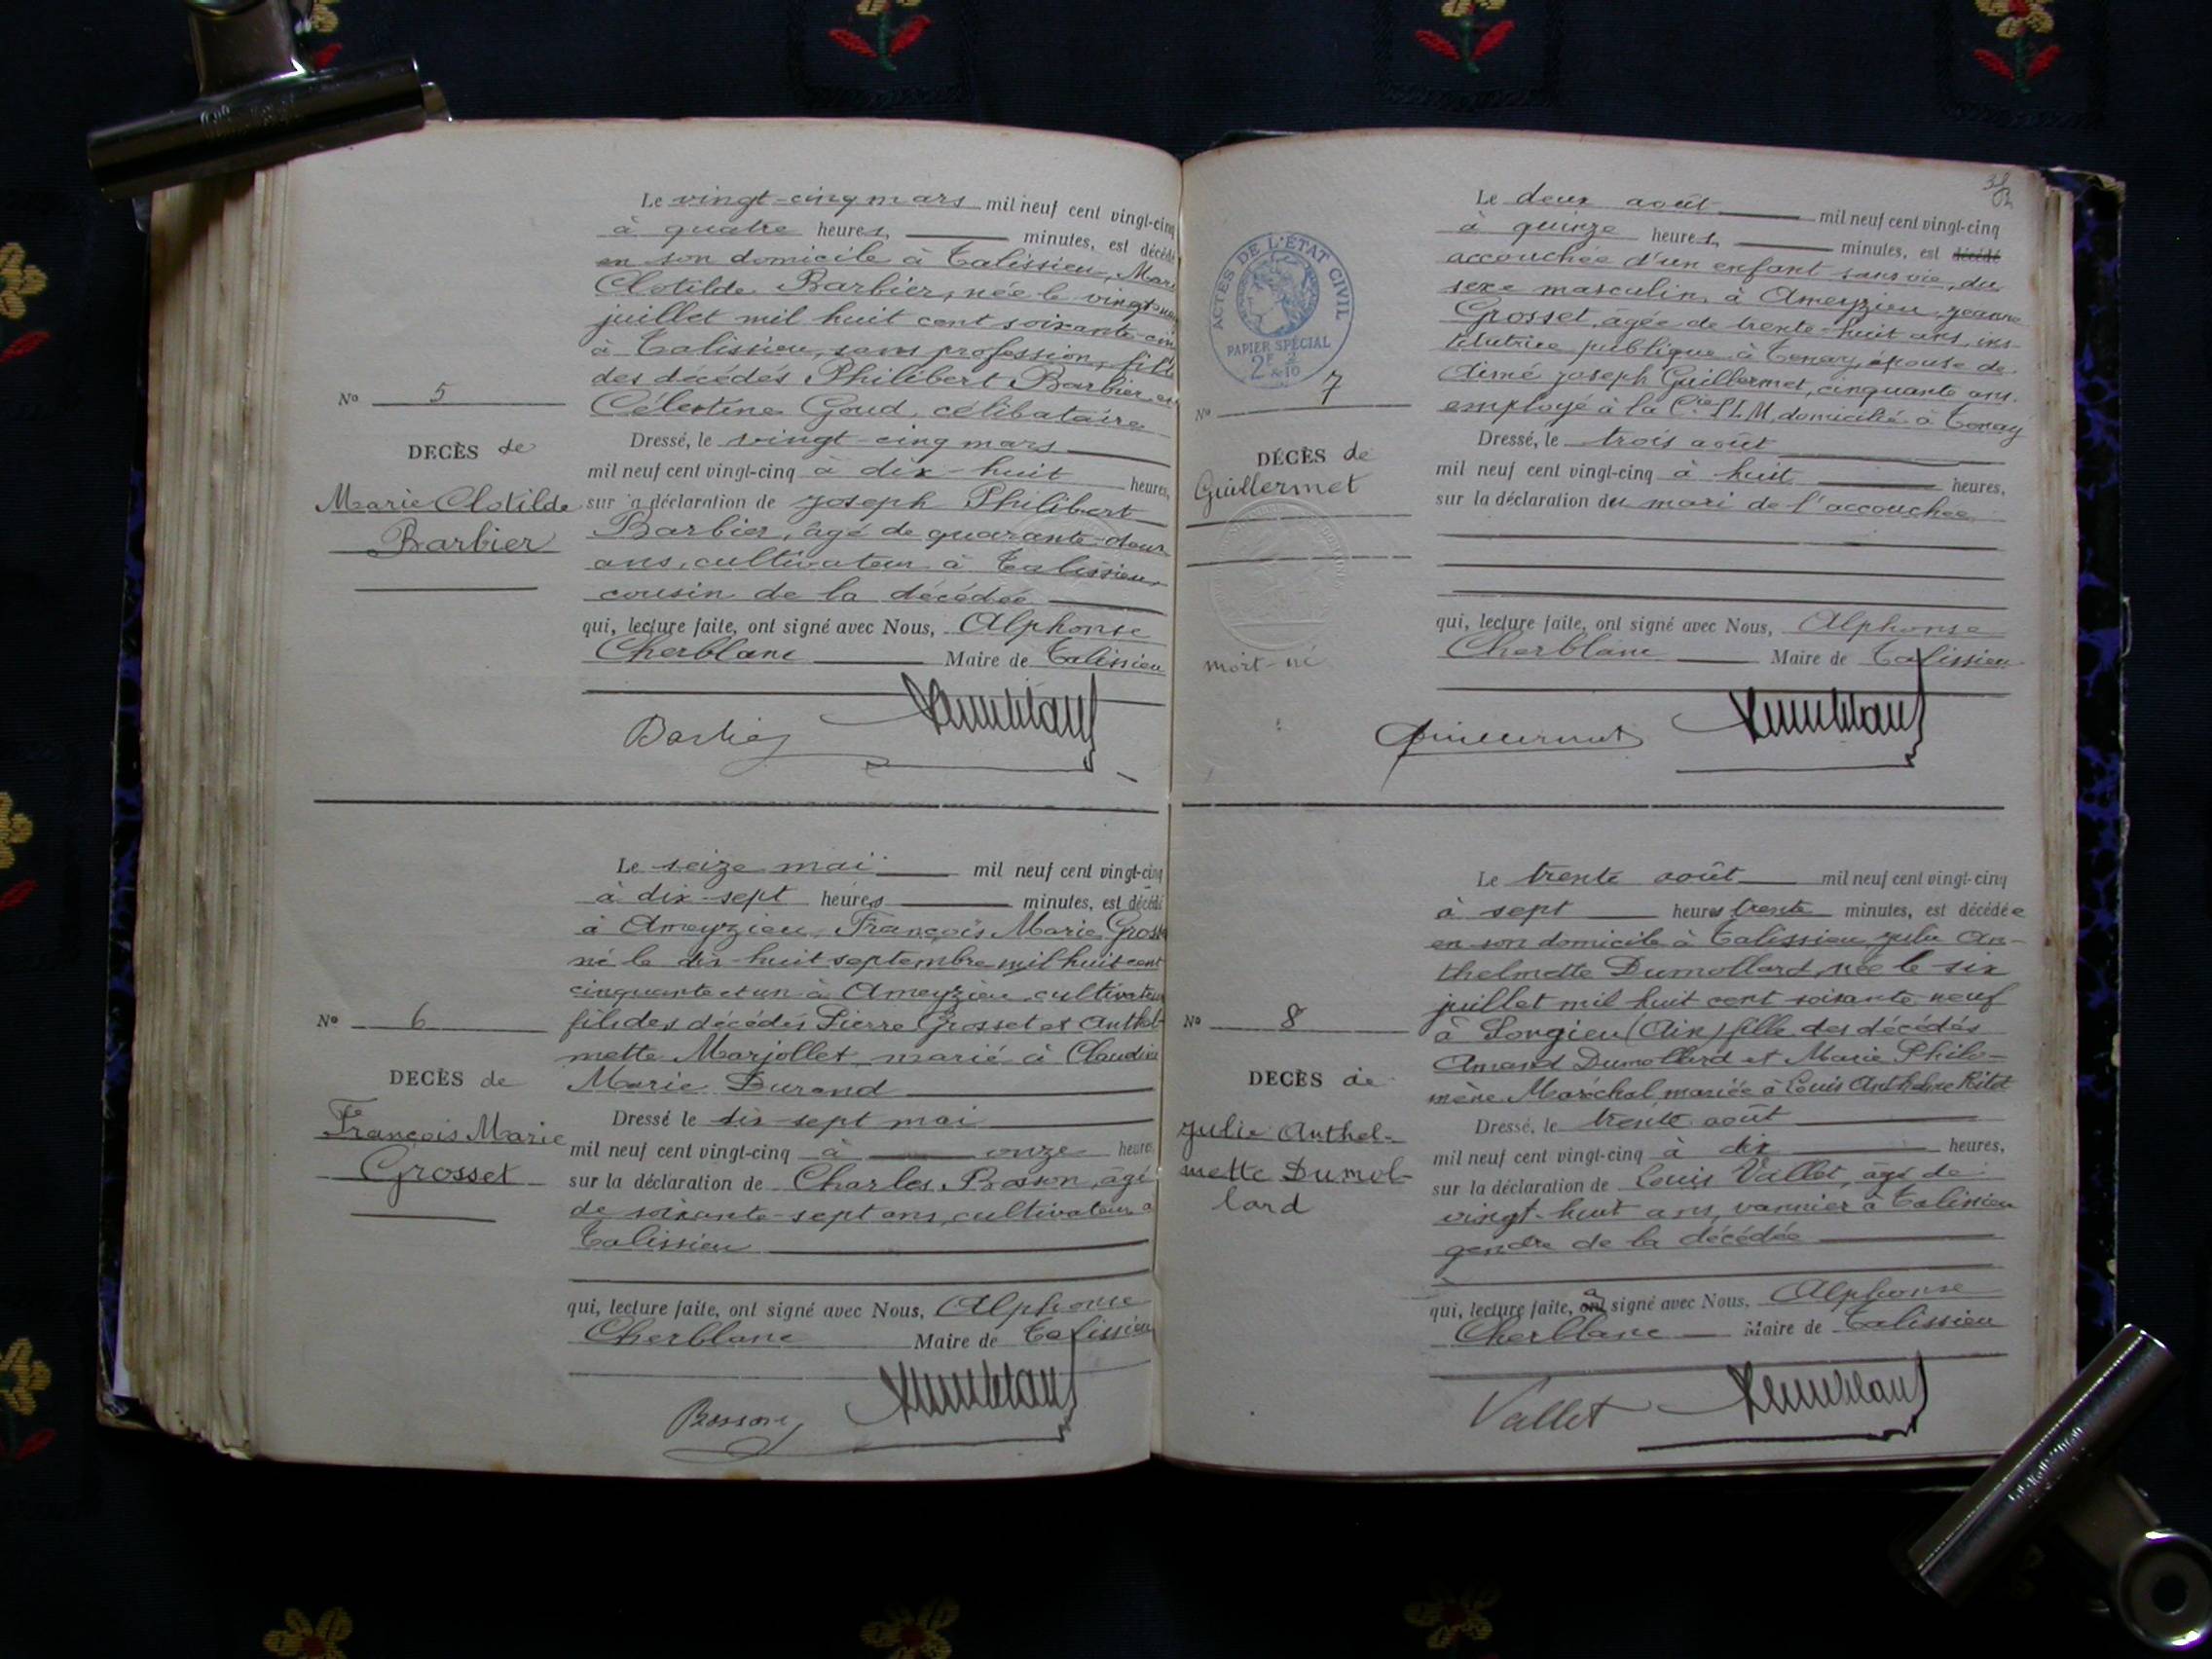 Le vingt-cinq mars mil neuf cent vingt-cinq
à quatre heures, minutes, est décédé
en son domicile à Talissieu, Marie
Clotilde Barbier, née le vingt
juillet mil huit cent soixante-cinq
à Talissieu, sans profession, fille
des décédés Philibert Barbier et
Célestine Goud, célibataire
Nº 5
DECÈS de
Marie Clotilde
Barbier
Dressé, le vingt-cinq mars
mil neuf cent vingt-cinq à dix-huit heures,
sur la déclaration de Joseph Philibert
Barbier, âgé de quarante-deux
ans, cultivateur à Talissieu,
cousin de la décédée
qui, lecture faite, ont signé avec Nous, Alphonse
Cherblanc Maire de Talissieu
Barbier
Le seize mai mil neuf cent vingt-cinq
à dix-sept heures minutes, est décédé
à Ameyzieu, François Marie Grosset
né le dix-huit septembre mil huit cent
cinquante et un à Ameyzieu, cultivateur
fils des décédés Pierre Grosset et Anthel-
mette Marjollet, marié à Claudine
Marie Durand
Nº 6
DECÈS de
François Marie
Grosset
Dressé le dix-sept mai
mil neuf cent vingt-cinq à onze heures
sur la déclaration de Charles Bosson, âgé
de soixante-sept ans, cultivateur à
Talissieu
qui, lecture faite, ont signé avec Nous, Alphonse
Cherblanc Maire de Talissieu
Bosson
Le deux août mil neuf cent vingt-cinq
à quinze heures, minutes, est décédé
accouchée d'un enfant sans vie, du
sexe masculin, à Ameyzieu, Jeanne
Grosset, âgée de trente-huit ans, ins-
titutrice publique à Tenay, épouse de
Aimé Joseph Guillermet, cinquante ans,
employé à la Cie P.L.M, domicilié à Tenay
ACTES DE L'ÉTAT CIVIL
PAPIER SPÉCIAL
Nº 7
DÉCÈS de
Guillermet
mort-né
Dressé, le trois août
mil neuf cent vingt-cinq à huit heures,
sur la déclaration du mari de l'accouchée
qui, lecture faite, ont signé avec Nous, Alphonse
Cherblanc Maire de Talissieu
Guillermet
Le trente août mil neuf cent vingt-cinq
à sept heures trente minutes, est décédée
en son domicile à Talissieu, Julie An-
thelmette Dumollard, née le six
juillet mil huit cent soixante neuf
à Songieu (Ain) fille des décédés
Amand Dumollard et Marie Philo-
mène Maréchal, mariée à Louis Anthelme
Nº 8
DECÈS de
Julie Anthel-
mette Dumol-
lard
Dressé, le trente août
mil neuf cent vingt-cinq à dix heures,
sur la déclaration de Louis Vallet, âgé de
vingt-huit ans, vannier à Talissieu
gendre de la décédée
qui, lecture faite, a signé avec Nous, Alphonse
Cherblanc Maire de Talissieu
Vallet